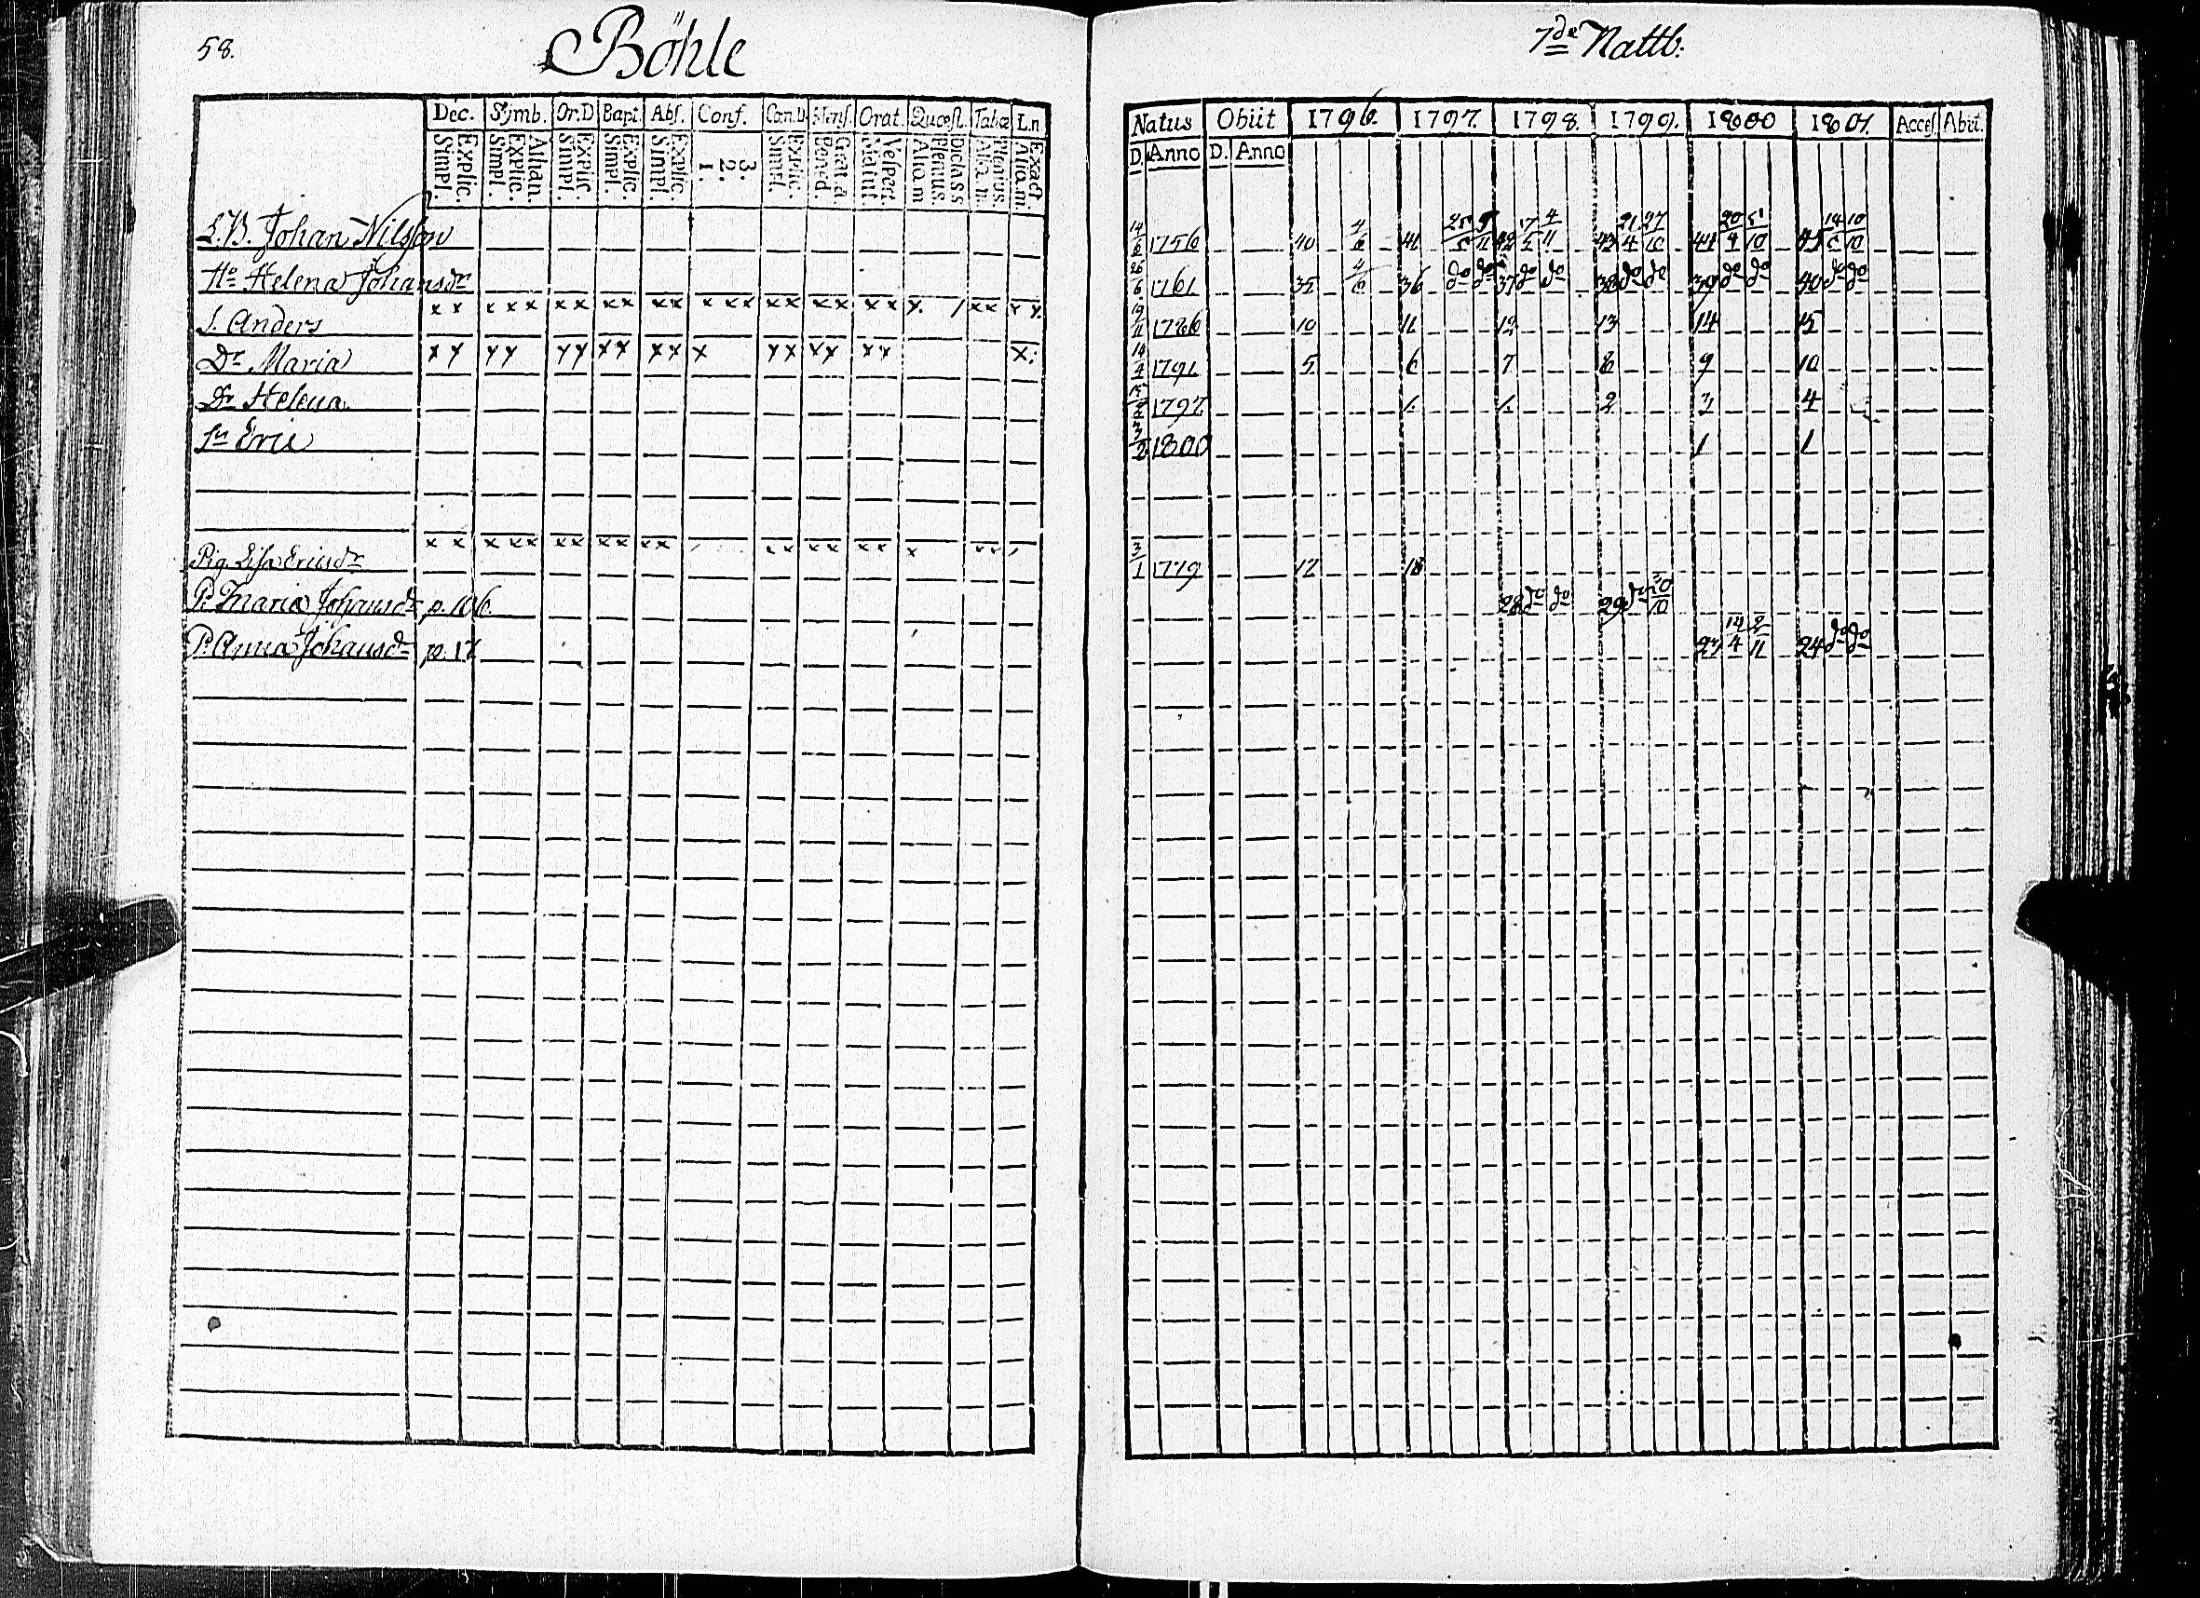 58.
Böhle
7de Nattb:
Dec. Symb. Or.D Bapt. Abs. Conf. Can.D Mens. Orat. Quæst. Tabæ L.n
Simpl. Explic. Simpl. Explic. Athan. Simpl. Explic. Simpl. Explic. Simpl. Explic. 1. 2. 3. Simpl. Explic. Bened. Grat.a. Matut. Vespert. Aliqm Plenius. Dict.a S S Aliqm. Plenius. Aliqm. Exact.
Natus Obiit 1796. 1797. 1798. 1799. 1800 1801. Acces Abit.
D. Anno D. Anno
L.B. Johan Nilsson 14/6 1756 40 4/6 41 25/5 5/11 42 17/5 4/11 43 21/4 27/10 44 20/4 5/10 45 14/5 10/10
Ho Helena Johansdr 26/6 1761 35 4/6 36 do do 37 do do 38 do do 39 do do 40 do do
S. Anders x x x x x x x x x x x x x x x x x x x x x x. / x x x x. 19/11 1786 10 11 12 13 14 15
Dr Maria x x x x x x x x x x x x x x x x x x x: 14/4 1791 5 6 7 8 9 10
Dr Helena. 1797 1. 1. 2 3 4
Sn Eric 3/2 1800 1 1
Pig. Lisa Ericsdr x x x x x x x x x x x x x x x x x x x x 3/1 1779 17 18
P. Maria Johansdr p. 106. 28 do do 29 do 20/10
P. Anna Johansdr p. 17 23 14/4 2/11 24 do do